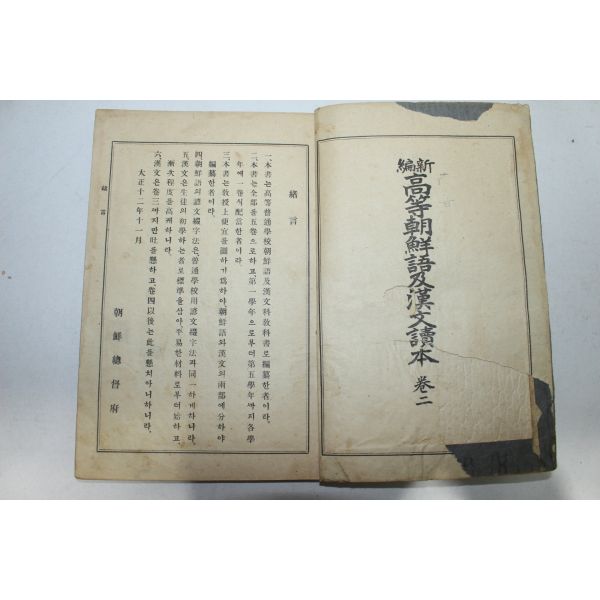 新編
高等朝鮮語及漢文讀本 卷二
緖言
一、本書는高等普通學校朝鮮語及漢文科敎科書로編纂한者이라、
二、本書는全部를五卷으로하고、第一學年으로부터第五學年까지各學
年에一卷식配當한者이라
三、本書는敎授上便宜를圖하기爲하야、朝鮮語와漢文의兩部에分하야
編纂한者이라、
四、朝鮮語의諺文綴字法은、普通學校用諺文綴字法과同一하게하니라、
五、漢文은生徒의初學하는者로標準을삼아、平易한材料로부터始하고、
漸次程度를高케하니라、
六、漢文은卷三까지만吐를懸하고、卷四以後는此를懸치아니하니라、
大正十二年十一月
朝鮮總督府
緖言